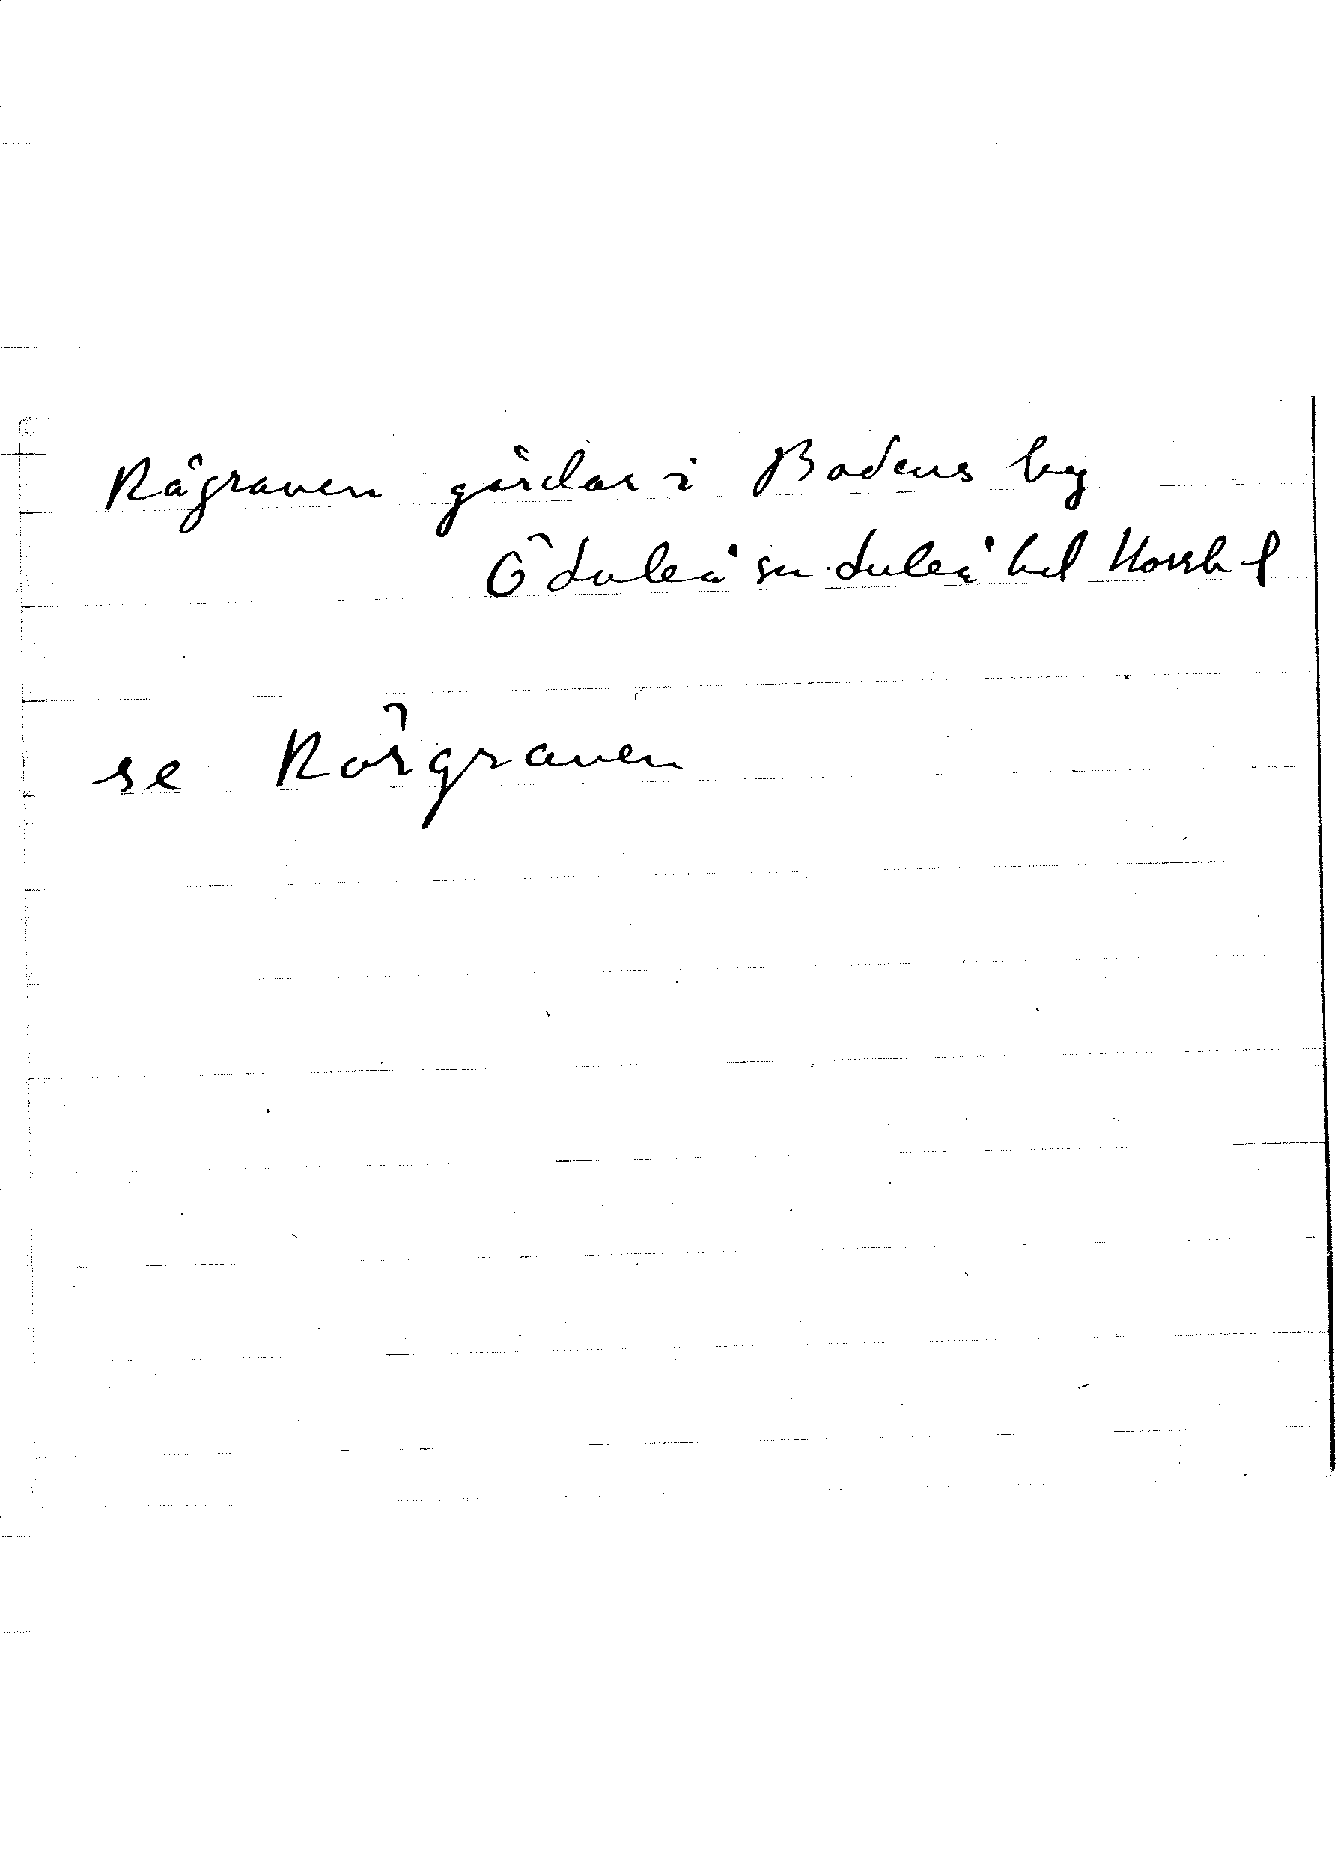 Rågraven gårdar i Bodens by
Ö Luleå sn Luleå hd Norrb l
se Rörgraven